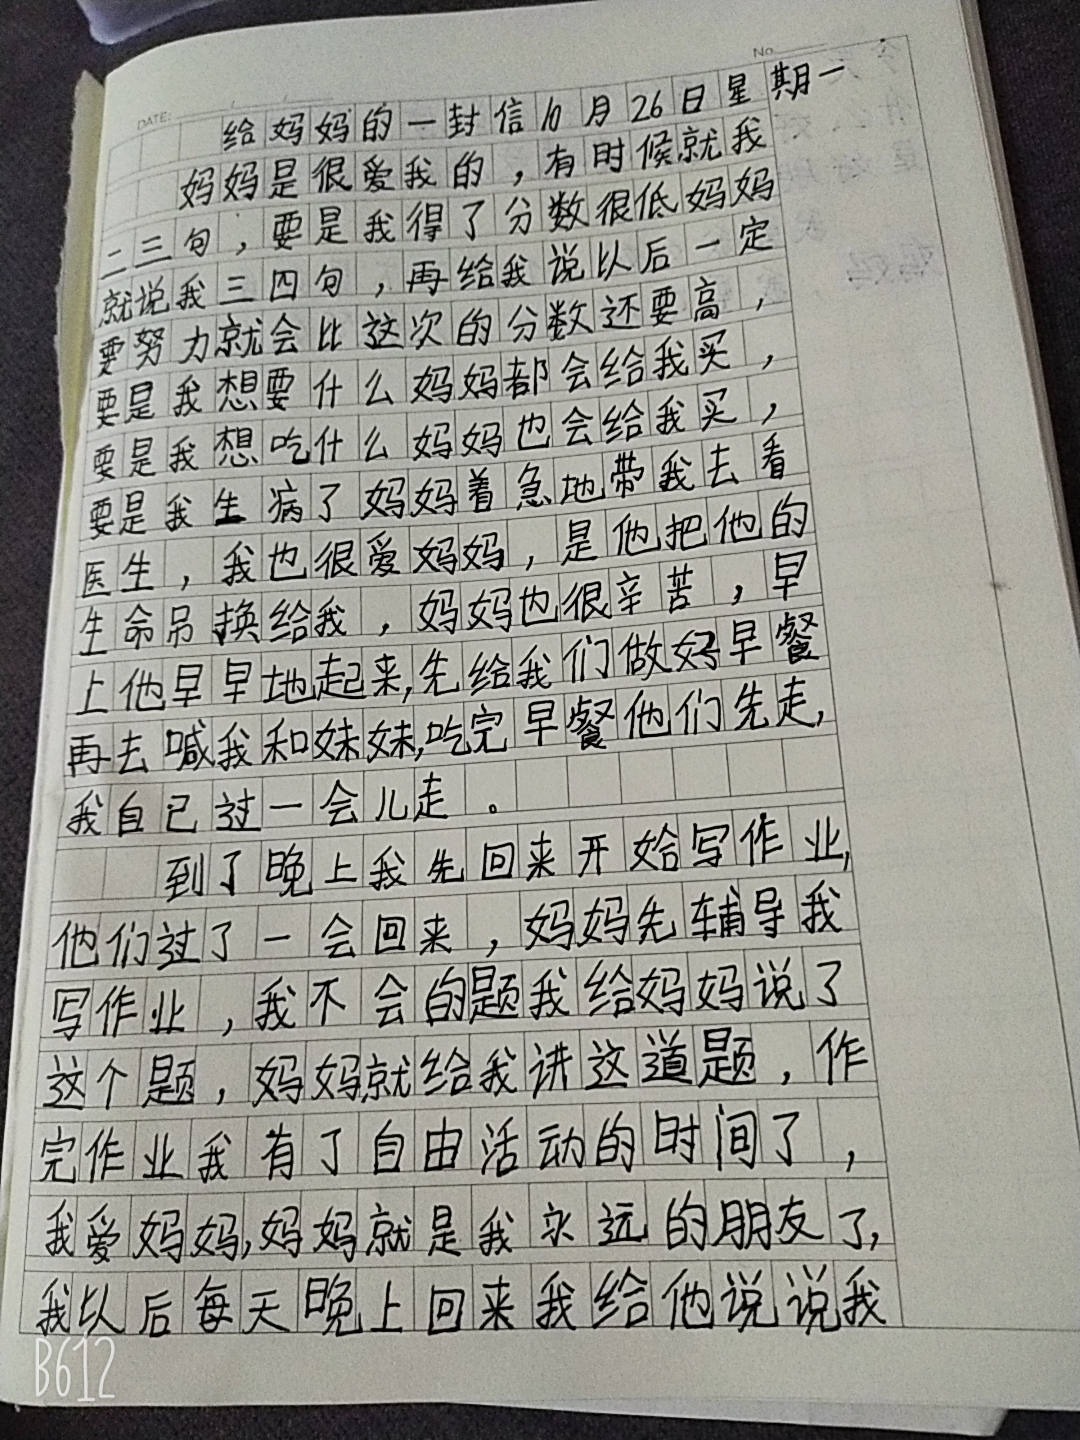 No
DATE:
给妈妈的一封信10月26日星期一
妈妈是很爱我的，有时候就我
二三句，要是我得了分数很低妈妈
就说我三四句，再给我说以后一定
要努力就会比这次的分数还要高，
要是我想要什么妈妈都会给我买，
要是我想吃什么妈妈也会给我买，
要是我生病了妈妈着急地带我去看
医生，我也很爱妈妈，是他把他的
生命吊换给我，妈妈也很辛苦，早
上他早早地起来,先给我们做好早餐
再去喊我和妹妹,吃完早餐他们先走,
我自己过一会儿走。
到了晚上我先回来开始写作业,
他们过了一会回来，妈妈先辅导我
写作业，我不会的题我给妈妈说了
这个题，妈妈就给我讲这道题，作
完作业我有了自由活动的时间了，
我爱妈妈,妈妈就是我永远的朋友了,
我以后每天晚上回来我给他说说我
B612